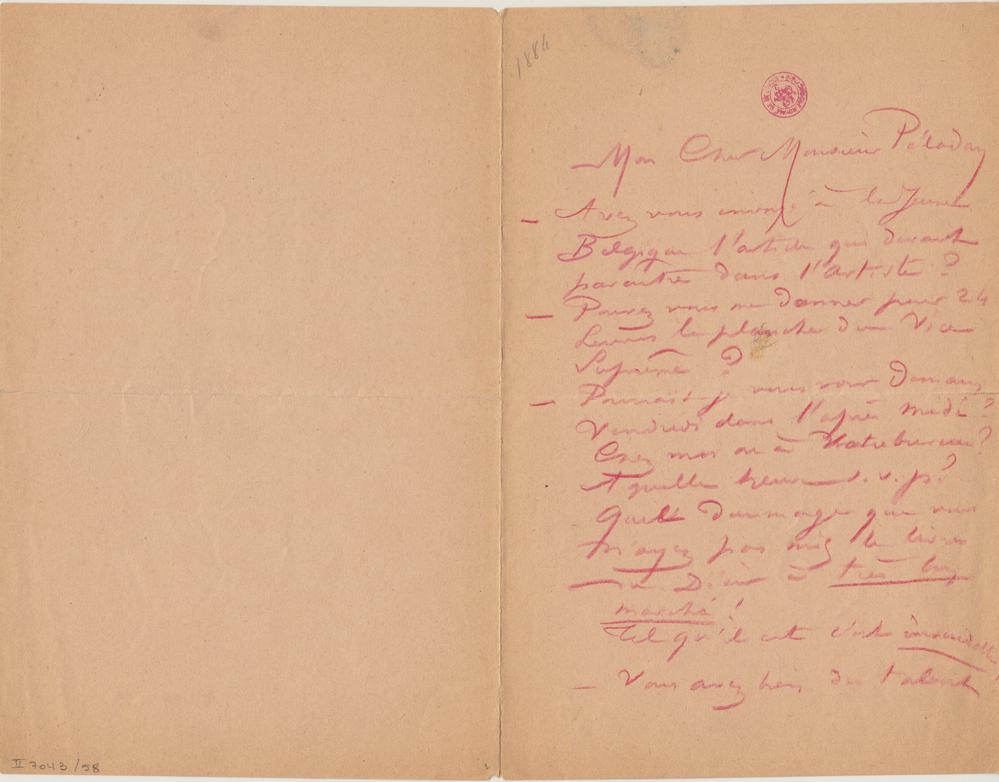 1884
Mon Cher Monsieur Péladan
— Avez vous envoyé à la Jeune
Belgique l'article qui devait
paraître dans l'artiste ?
— Pouvez vous me donner pour 24
heures la planche du Vice
Suprême ?
— Pourrais-je vous voir Demain
Vendredi dans l'après midi ?
Chez moi ou à Notre bureau ?
A quelle heure s. v. p ?
Quel dommage que vous
n'ayez pas mis le livre
à très bon
marché !
Tel qu'il est c'est
— Vous avez bien du talent
II 7043 / 58